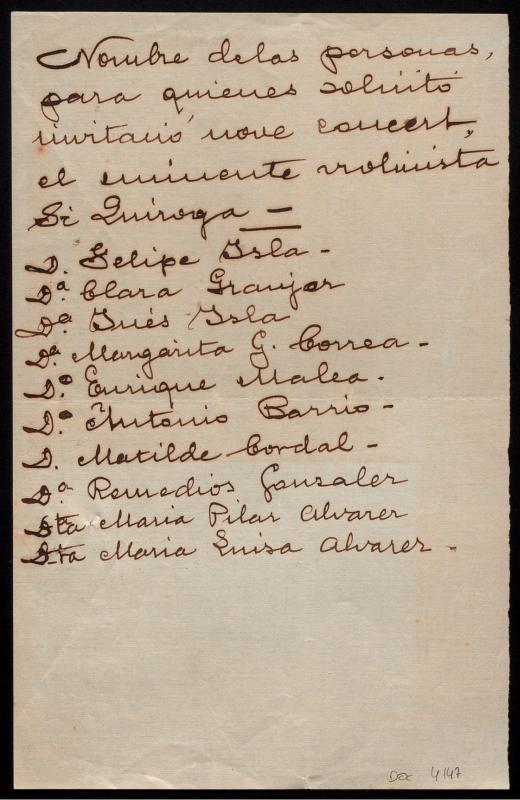 Nombre de las personas,
para quienes solicitó
invitació nove concert,
el eminente violinista
Sr Quiroga —
D. Felipe Isla -
Dª Clara Granjer
Dª Inés Isla
Dª Margarita G. Correa -
Dº Enrique Malea -
Dº Antonio Barrio -
D. Matilde Cordal -
Dª Remedios Gonzaler
Sta Maria Pilar Alvarer
Sta Maria Luisa Alvarer -
Doc 4147